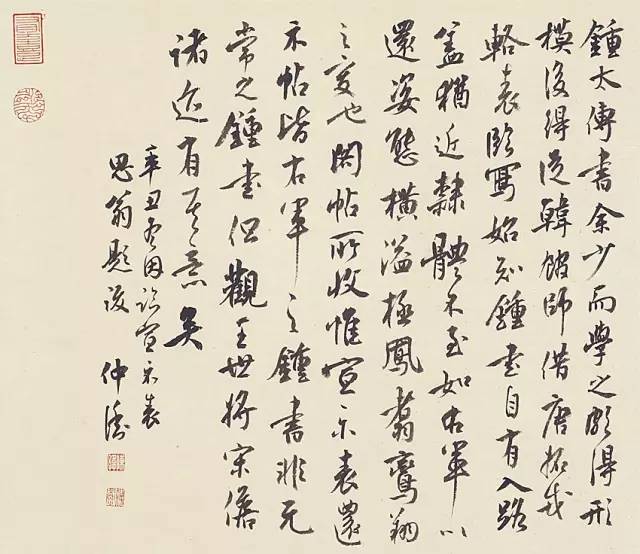 鍾太傅書余少而學之頗得形
模後得從韓館師借唐拓戎
輅表臨寫始知鍾書自有入路
蓋猶近隸體不至如右軍以
還姿態橫溢極鳳翥鸞翔
之變也閣帖所收惟宣示表還
示帖皆右軍之鍾書非元
常之鍾書但觀王世將宋儋
諸迹有其意矣
辛丑冬因臨宣示表
思翁題後 仲